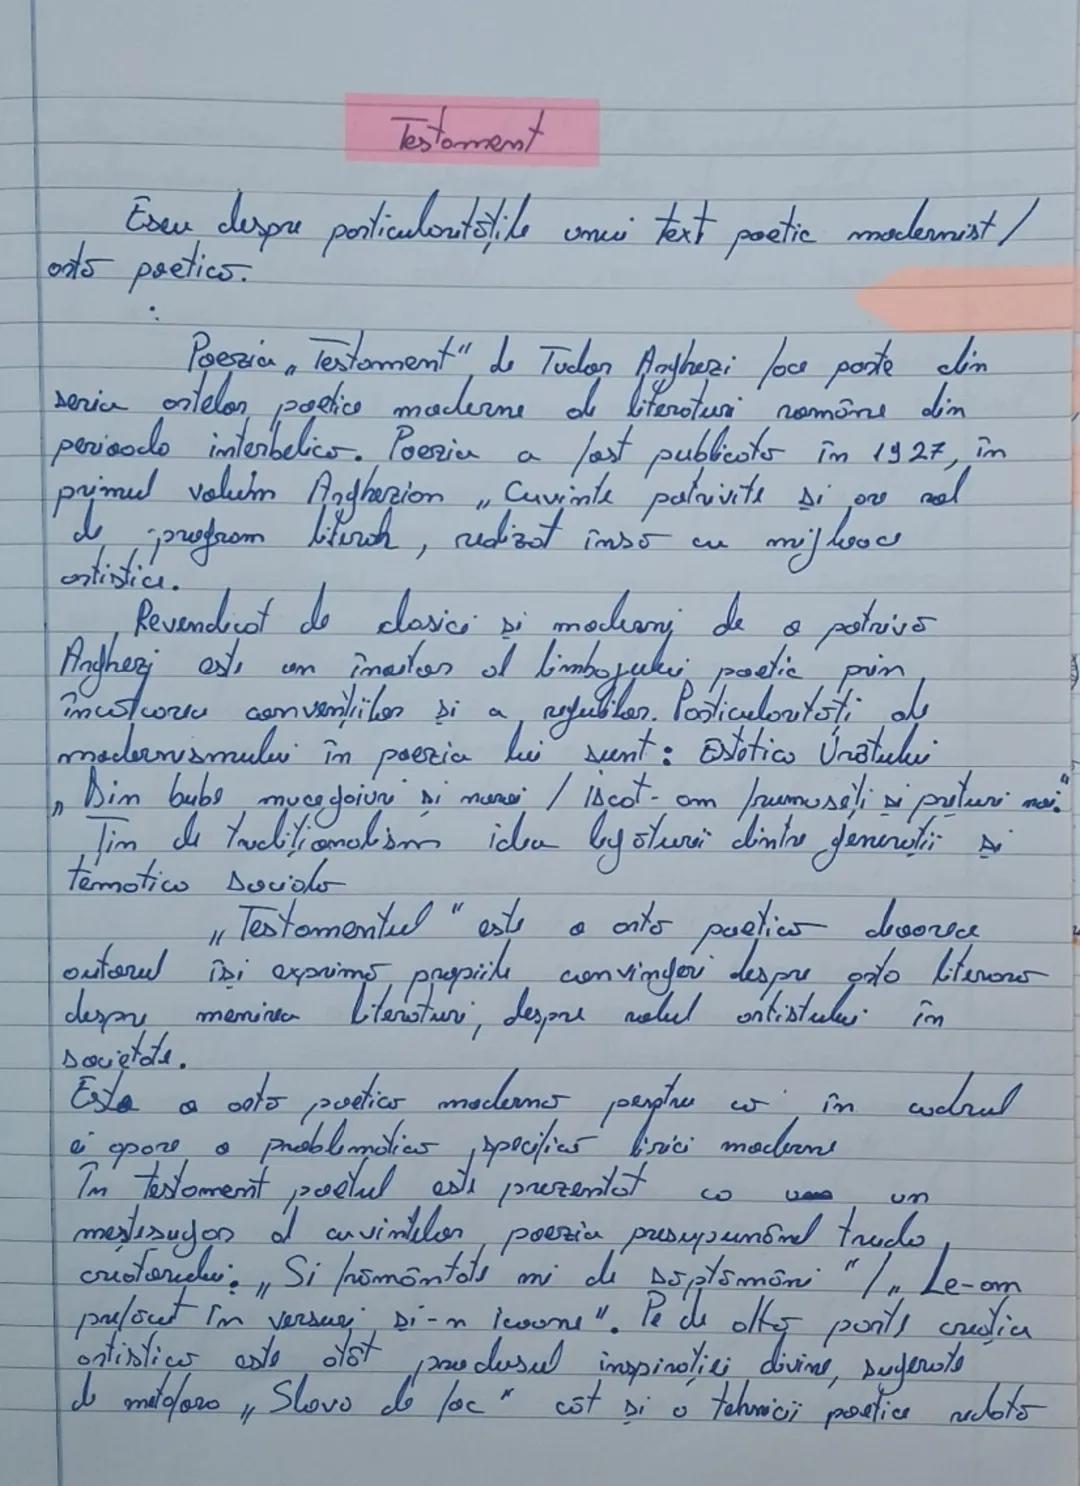 Testament
Eseu despre particularitățile unui text poetic modernist /
artă poetică.
Poezia „Testament" de Tudor Arghezi face parte din
seria artelor poetice moderne ale literaturi române din
perioada interbelică. Poezia a fost publicată în 1927, în
primul volum Arghezian „Cuvinte potrivite și are rol
de program literar, realizat însă cu mijloace
artistice.
Revendicat de clasici și moderni de o potrivă
Arghezi este un înaitor al limbajului poetic prin
încălcarea convențiilor și a regulilor. Particularități ale
modernismului în poezia lui sunt: Estetica Urâtului
„Din bube mucegaiuri și noroi / iscat-am frumuseți și prețuri noi."
Țin de tradiționalism idea legăturii dintre generații și
tematica socială
„Testamentul" este o artă poetică deoarece
autorul își exprimă propriile convingeri despre arta literară
despre menirea literaturi, despre rolul artistului în
societate.
Este o artă poetică modernă pentru că în cadrul
ei apare o problematică specifică liricii moderne
În Testament poetul este prezentat ca un
meșteșugar al cuvintelor, poezia presupunând truda
creatorului: „Și frământate mi de săptămâni" / „Le-am
prefăcut în versuri și-n icoane". Pe de altă parte creația
artistică este atât produsul inspirației divine, sugerate
de metafora „Slova de foc" cât și a tehnicii poetice redată